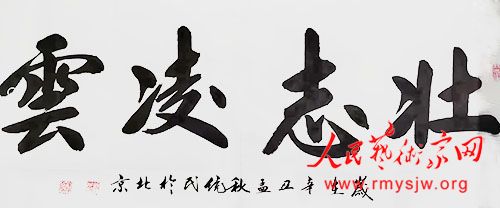 壮志凌雲
歲在辛丑孟秋民於北京
人民藝術家网
www.rmysjw.org